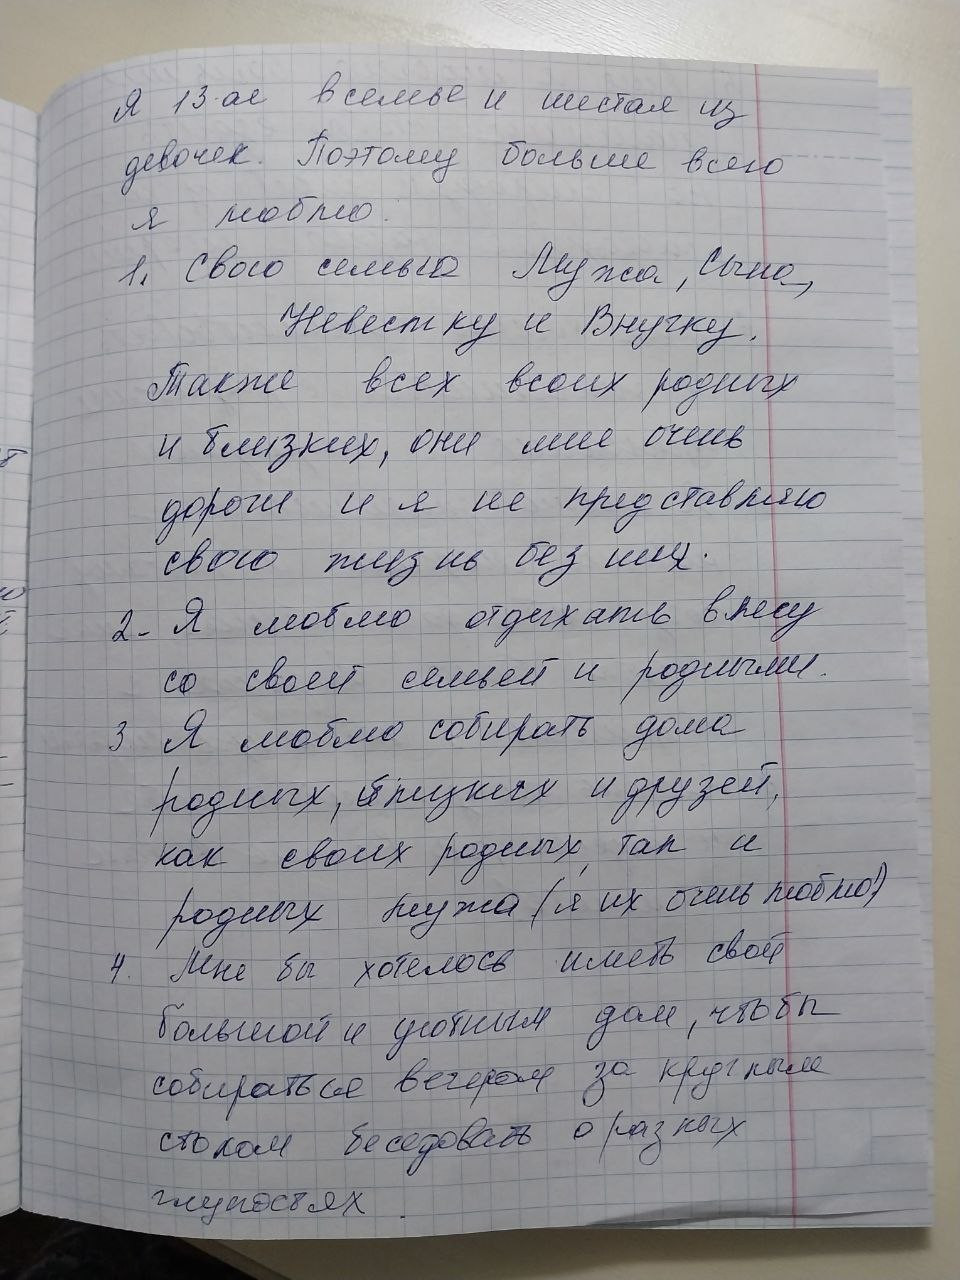 Я 13-ая в семье и шестая из
девочек. Поэтому больше всего
я люблю.
1. Свою семью Мужа, Сына,
Невестку и Внучку.
Также всех всоих родных
и близких, они мне очень
дороги и я не представляю
свою жизнь без них.
2- Я люблю отдыхать в лесу
со своей семьей и родными.
3 Я люблю собирать дома
родных, близких и друзей,
как своих родных, так и
родных мужа (я их очень люблю!)
4. Мне бы хотелось иметь свой
большой и уютным дом, чтобы
собираться вечером за круглым
столом беседовать о разных
глупостях.